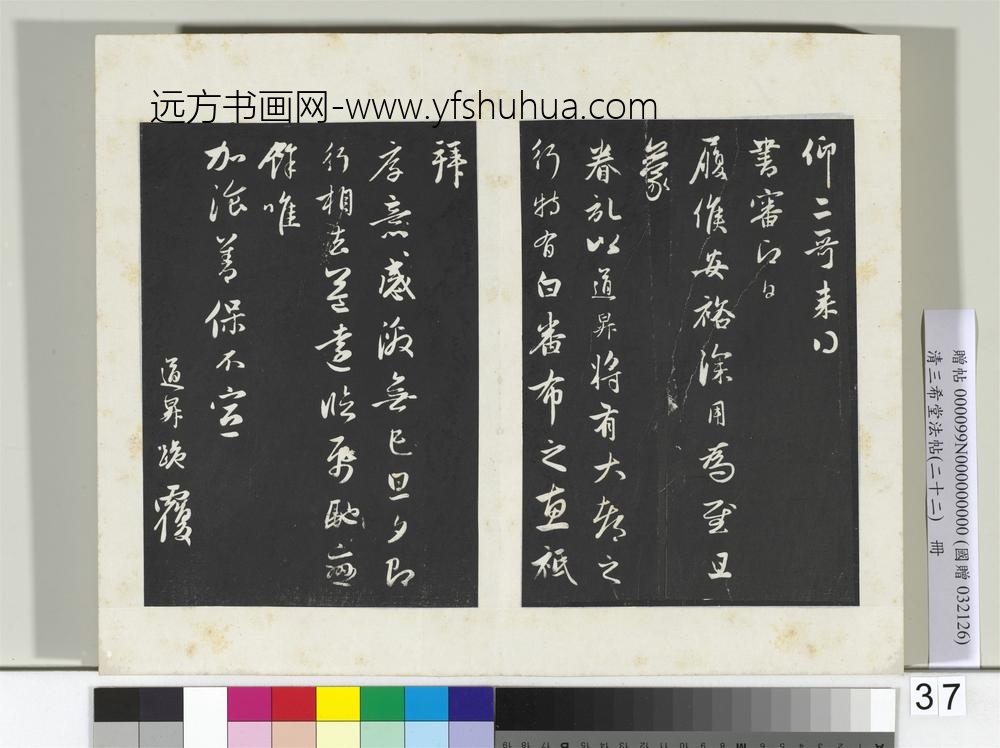 远方书画网-www.yfshuhua.com
仰二哥来日
書審即日
履候安裕深用為慰且
蒙
眷礼以道昇將有大都之
行特有白番布之惠祗
拜
厚意感激無已旦夕即
行相去益遠臨
餘唯
加湌善保不宣
道昇跪覆
贈帖 000099N000000000 (國贈 032126)
清三希堂法帖(二十二) 冊
37